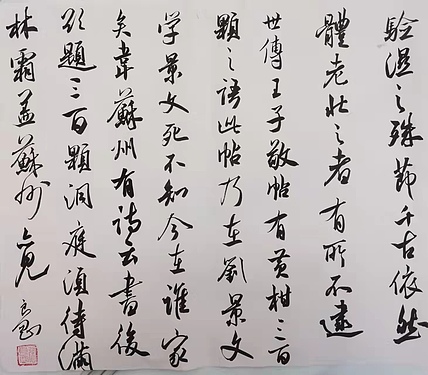 驗濕之殊節千古依然
體老壯之者有所不逮
世傳王子敬帖有黃柑三百
顆之語此帖乃在劉景文
学景文死不知今在誰家
矣韋蘇州有詩云書後
欲題三百顆洞庭須待滿
林霜蓋蘇州亦見